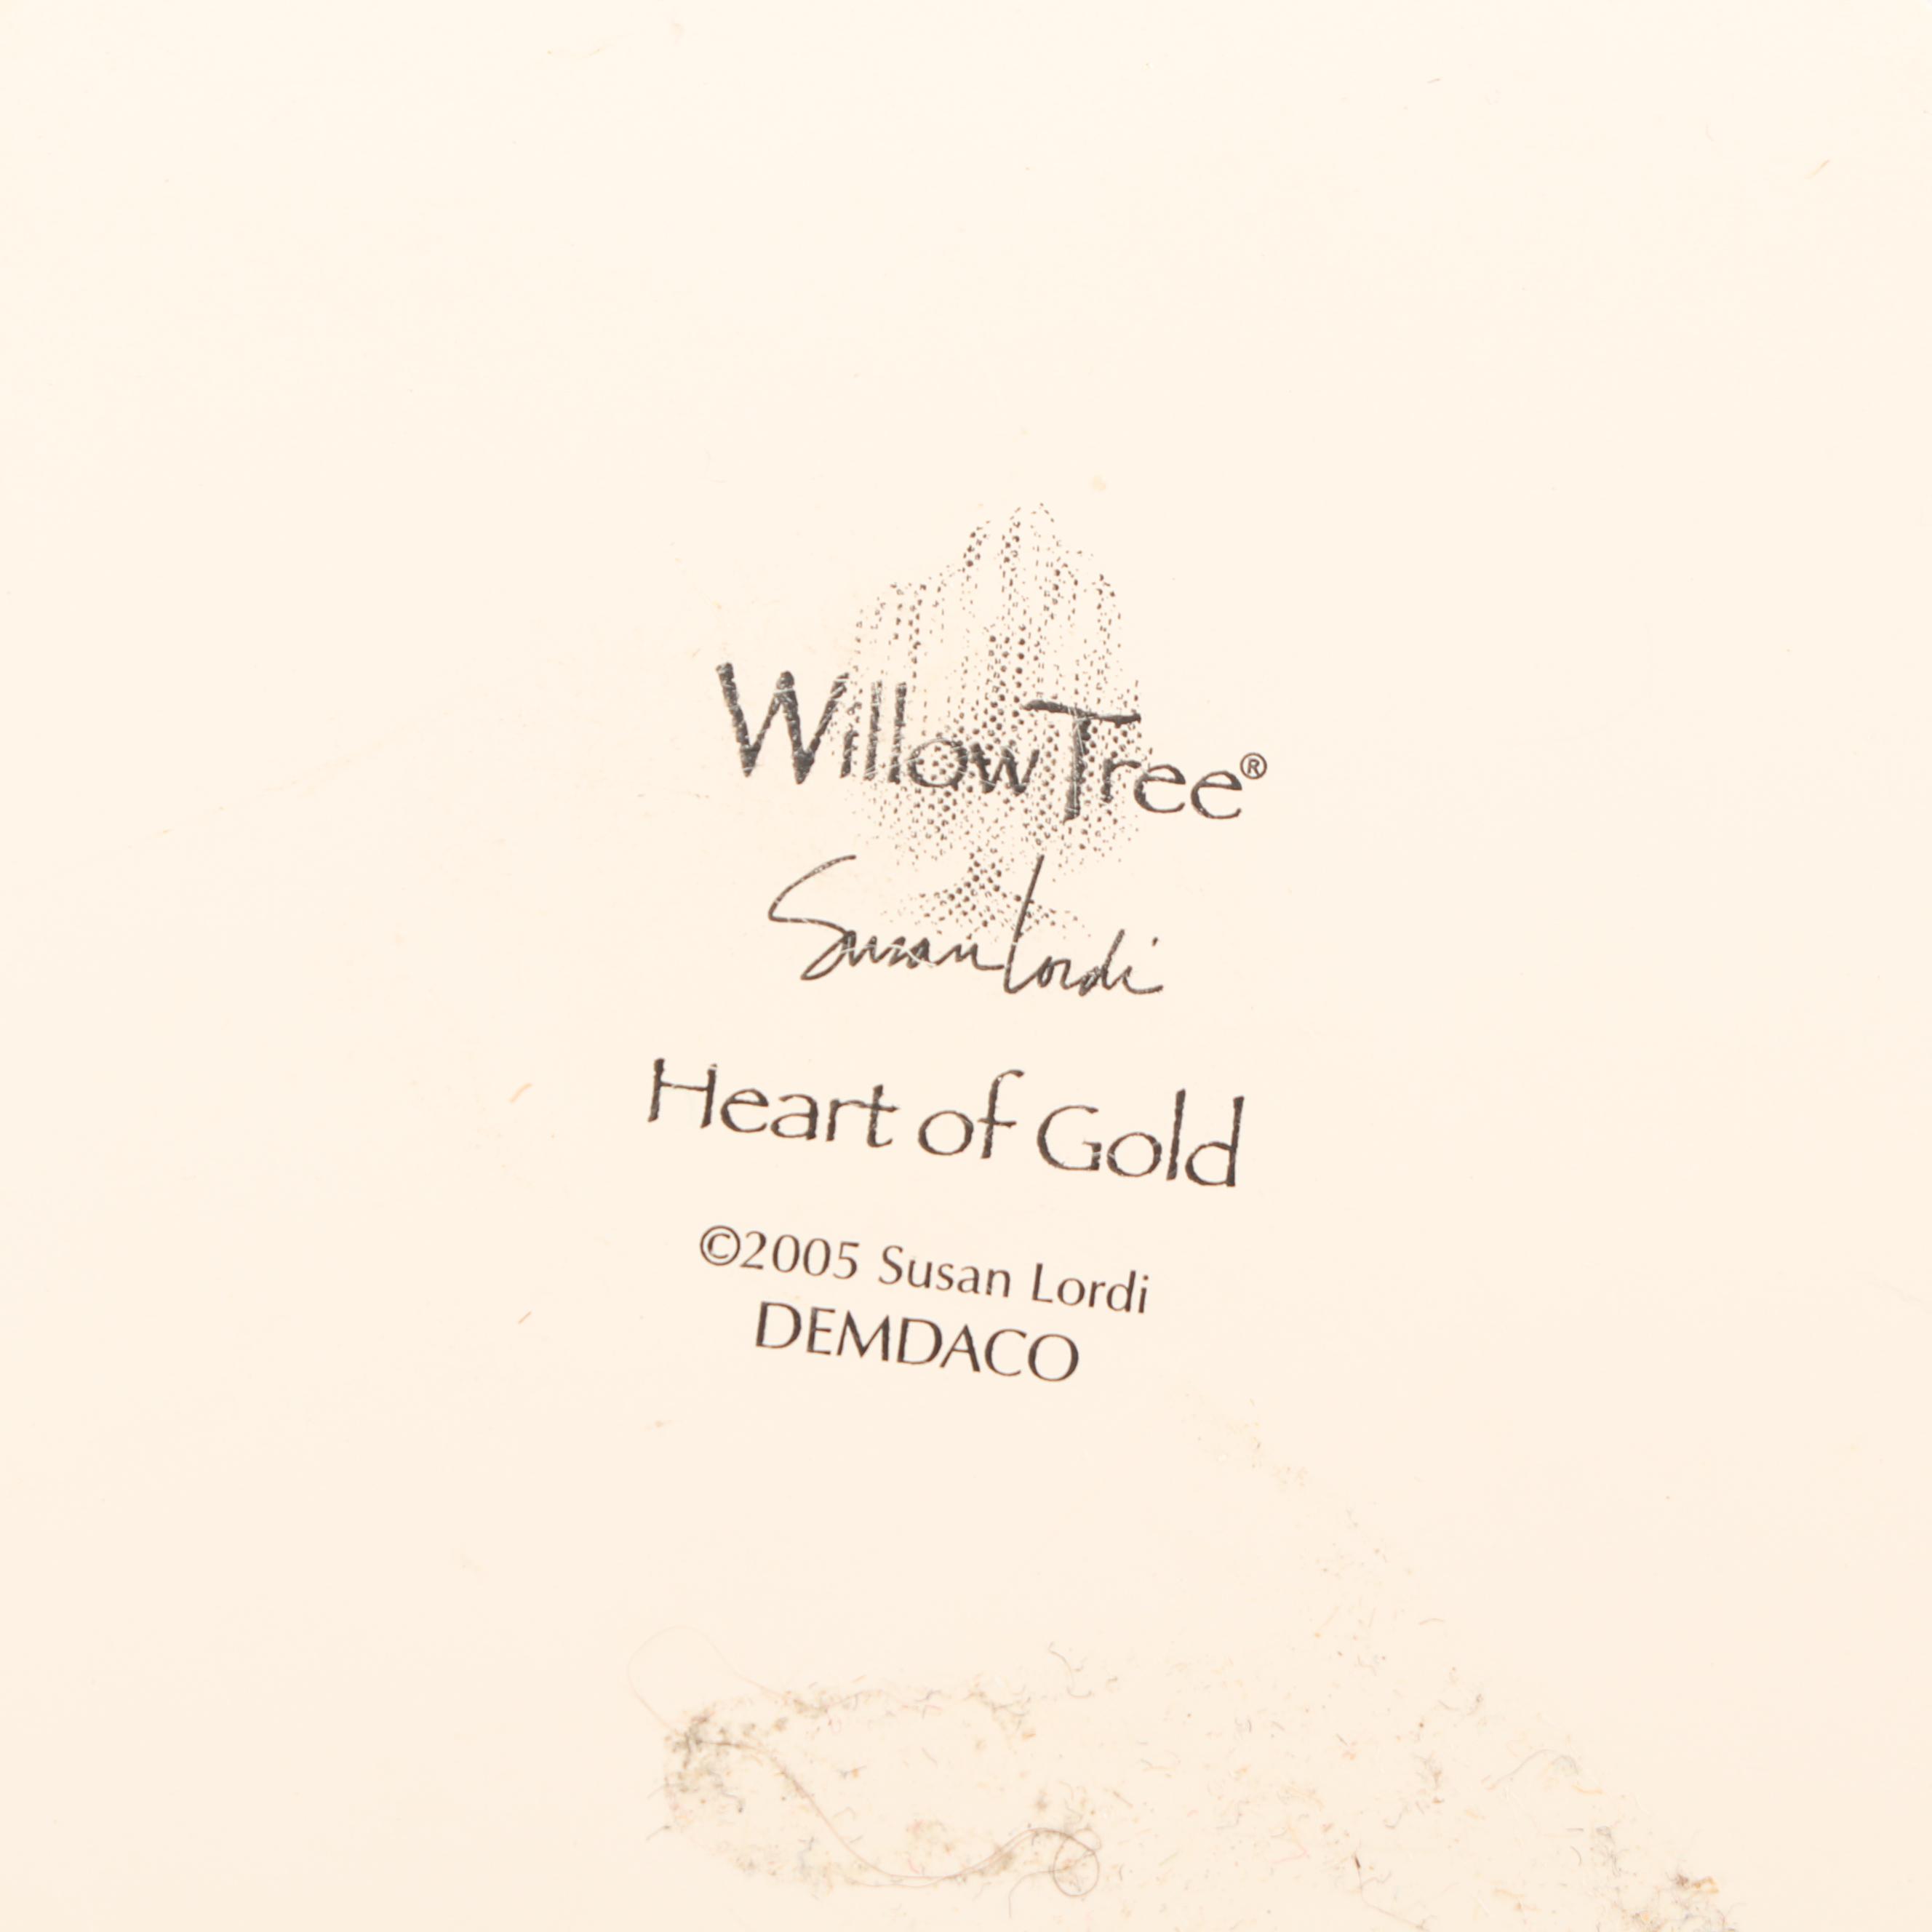 Willow Tree®
Susan Lordi
Heart of Gold
©2005 Susan Lordi
DEMDACO